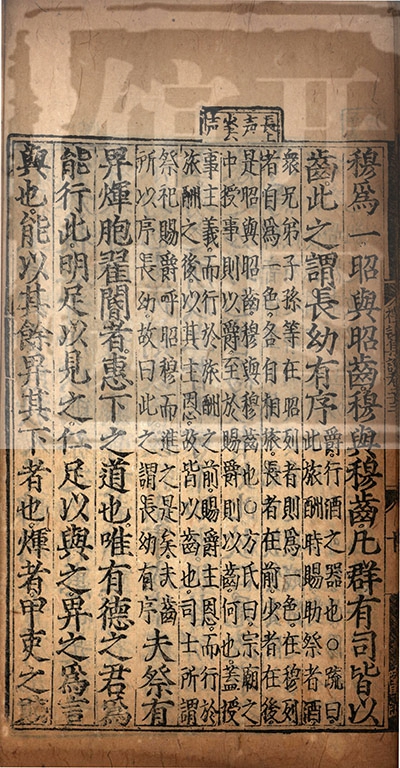 長上声
少去声
穆爲一昭與昭齒穆與穆齒凡群有司皆以
齒此之謂長幼有序
爵行酒之器也○疏曰
此旅酬時賜助祭者酒
衆兄弟子孫等在昭列者則爲一色在穆列
者自爲一色各自相旅長者在前少者在後
是昭與昭齒穆與穆齒也○方氏曰宗廟之
中授事則以爵至於賜爵則以齒何也蓋授
事主義而行於旅酬之前賜爵主恩而行於
旅酬之後以其主恩故皆以齒也司士所謂
祭祀賜爵呼昭穆而進之是矣夫齒
所以序長幼故曰此之謂長幼有序
夫祭有
畀煇胞翟閽者惠下之道也唯有德之君爲
能行此明足以見之仁足以與之畀之爲言
與也能以其餘畀其下者也煇者甲吏之賤